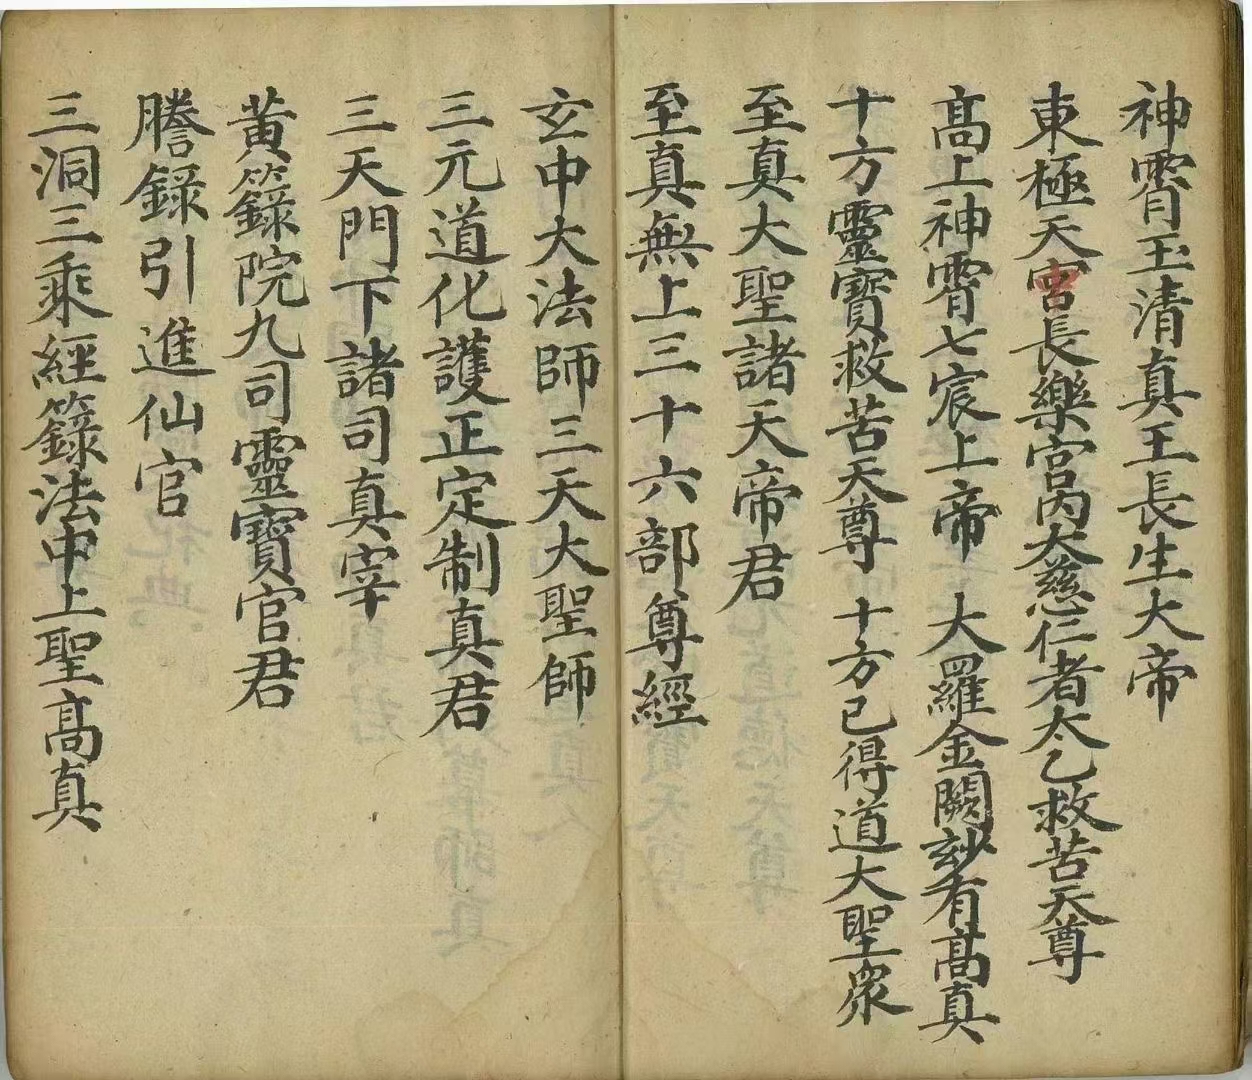 神霄玉清真王長生大帝
東極天宮長樂宮內大慈仁者太乙救苦天尊
髙上神霄七宸上帝　大羅金闕玅有髙真
十方靈寶救苦天尊　十方已得道大聖衆
至真大聖諸天帝君
至真無上三十六部尊經
玄中大法師三天大聖師
三元道化護正定制真君
三天門下諸司真宰
黃籙院九司靈寶官君
謄錄引進仙官
三洞三乘經籙法中上聖髙真